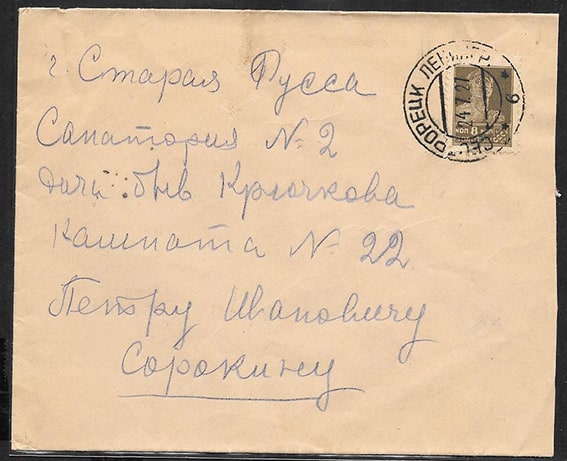 г Старая Русса
Санатория № 2
дача быв Крючкова
Комната № 22
Петру Ивановичу
Сорокину
РОРЕЦК ЛЕНИНГР.
24.7.2
* 6
КОП 8